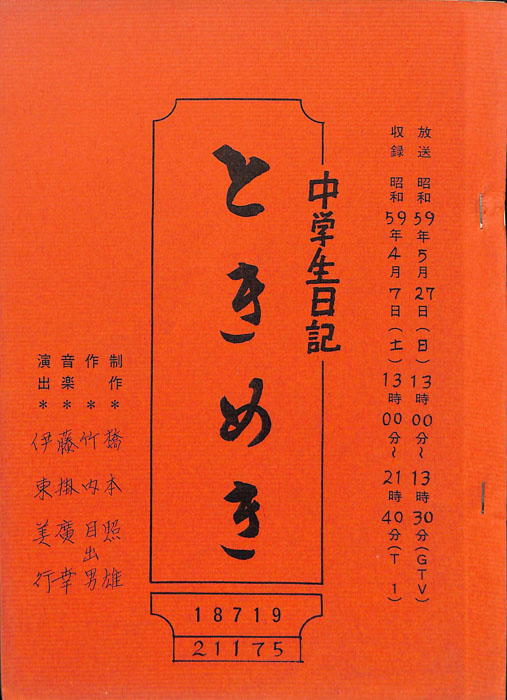 放送 昭和59年5月27日(日)13時00分～13時30分(GTV)
収録 昭和59年4月7日(土)13時00分～21時40分(T1)
中学生日記
ときめき
制作*橋本照雄
作*竹内日出男
音楽*藤掛廣幸
演出*伊東美行
18719
21175